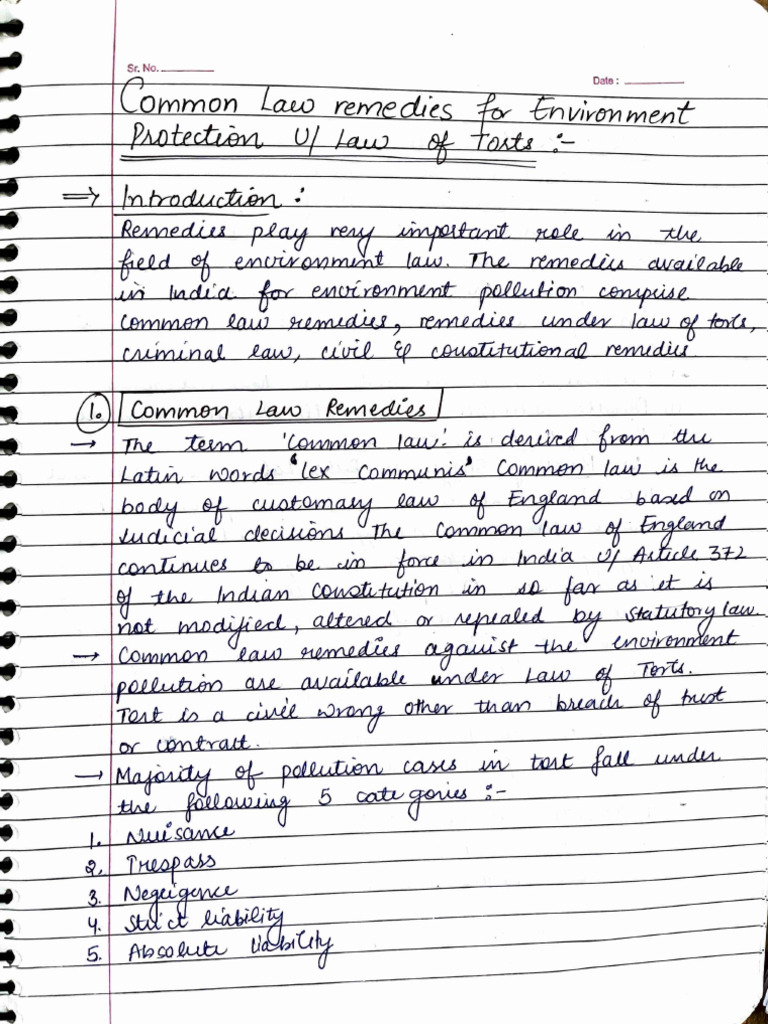 Sr. No.
Date :
Common Law remedies for Environment
Protection U/ Law of Torts :-
=> Introduction :
Remedies play very important role in the
field of environment law. The remedies available
in India for environment pollution comprise
common law remedies, remedies under law of torts,
criminal law, civil & constitutional remedies
1. Common Law Remedies
→ The term 'common law' is derived from the
Latin words 'lex Communis' Common law is the
body of customary law of England based on
Judicial decisions The Common law of England
continues to be in force in India U/ Article 372
of the Indian Constitution in so far as it is
not modified, altered or repealed by statutory law.
→ Common law remedies against the environment
pollution are available under Law of Torts.
Tort is a civil wrong other than breach of trust
or contract.
→ Majority of pollution cases in tort fall under
the following 5 categories :-
1. Nuisance
2. Trespass
3. Negligence
4. Strict liability
5. Absolute liability